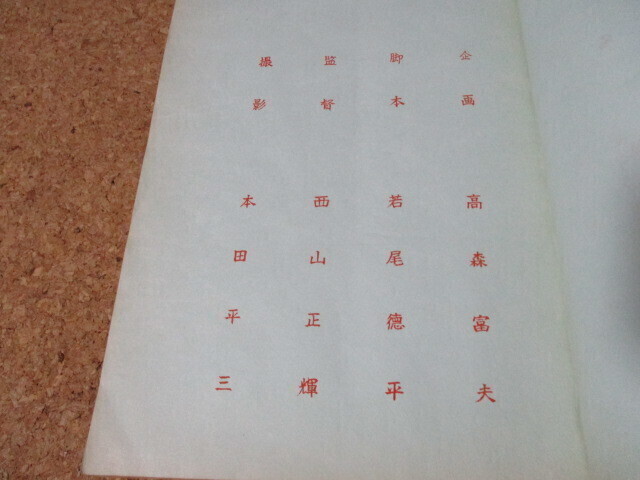 企画 高森富夫
脚本 若尾徳平
監督 西山正輝
撮影 本田平三